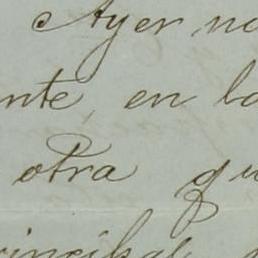 Ayer no
nte, en la
otra qu
rincipal